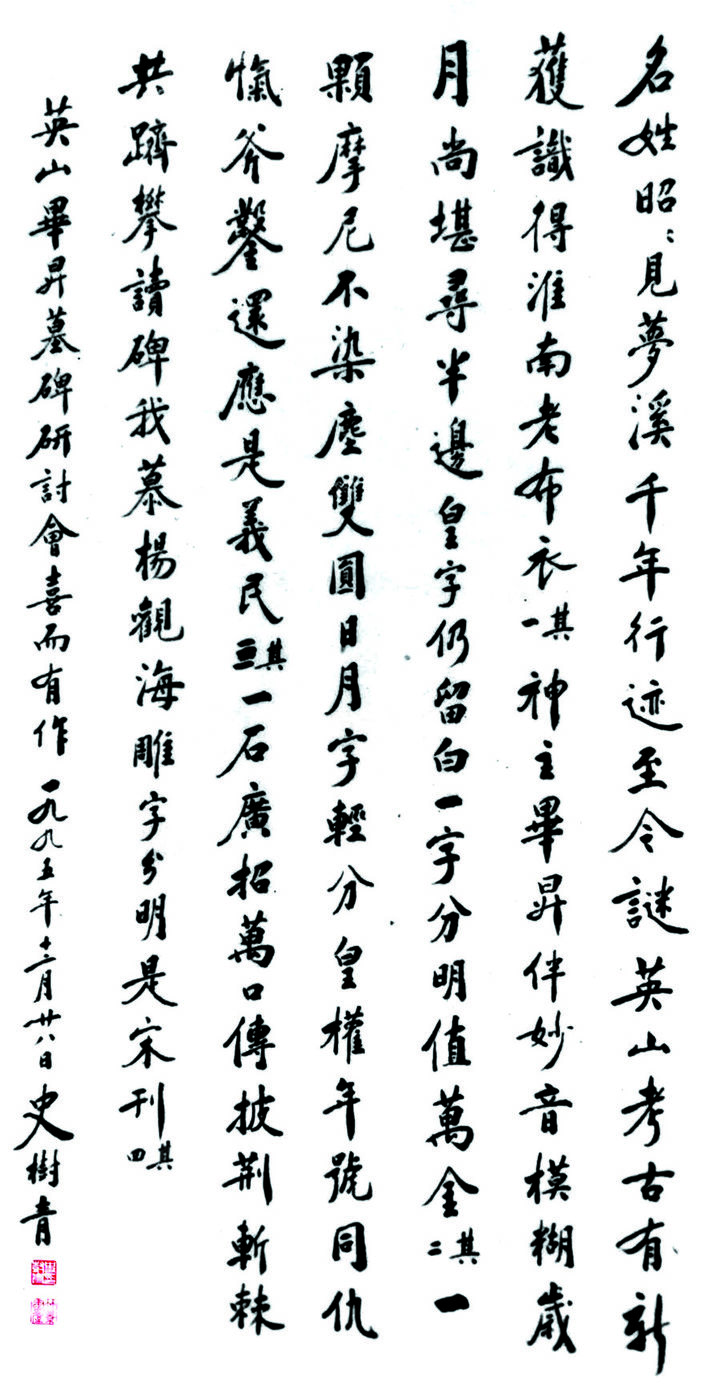 名姓昭〻見夢溪千年行迹至今謎英山考古有新
獲識得淮南老布衣其一神主畢昇伴妙音模糊歲
月尚堪尋半邊皇字仍留白一字分明值萬金其二一
顆摩尼不染塵雙圓日月字輕分皇權年號同仇
愾斧鑿還應是義民其三一石廣招萬口傳披荆斬棘
共躋攀讀碑我慕楊觀海雕字分明是宋刊其四
英山畢昇墓碑研討會喜而有作一九九五年十二月廿八日史樹青